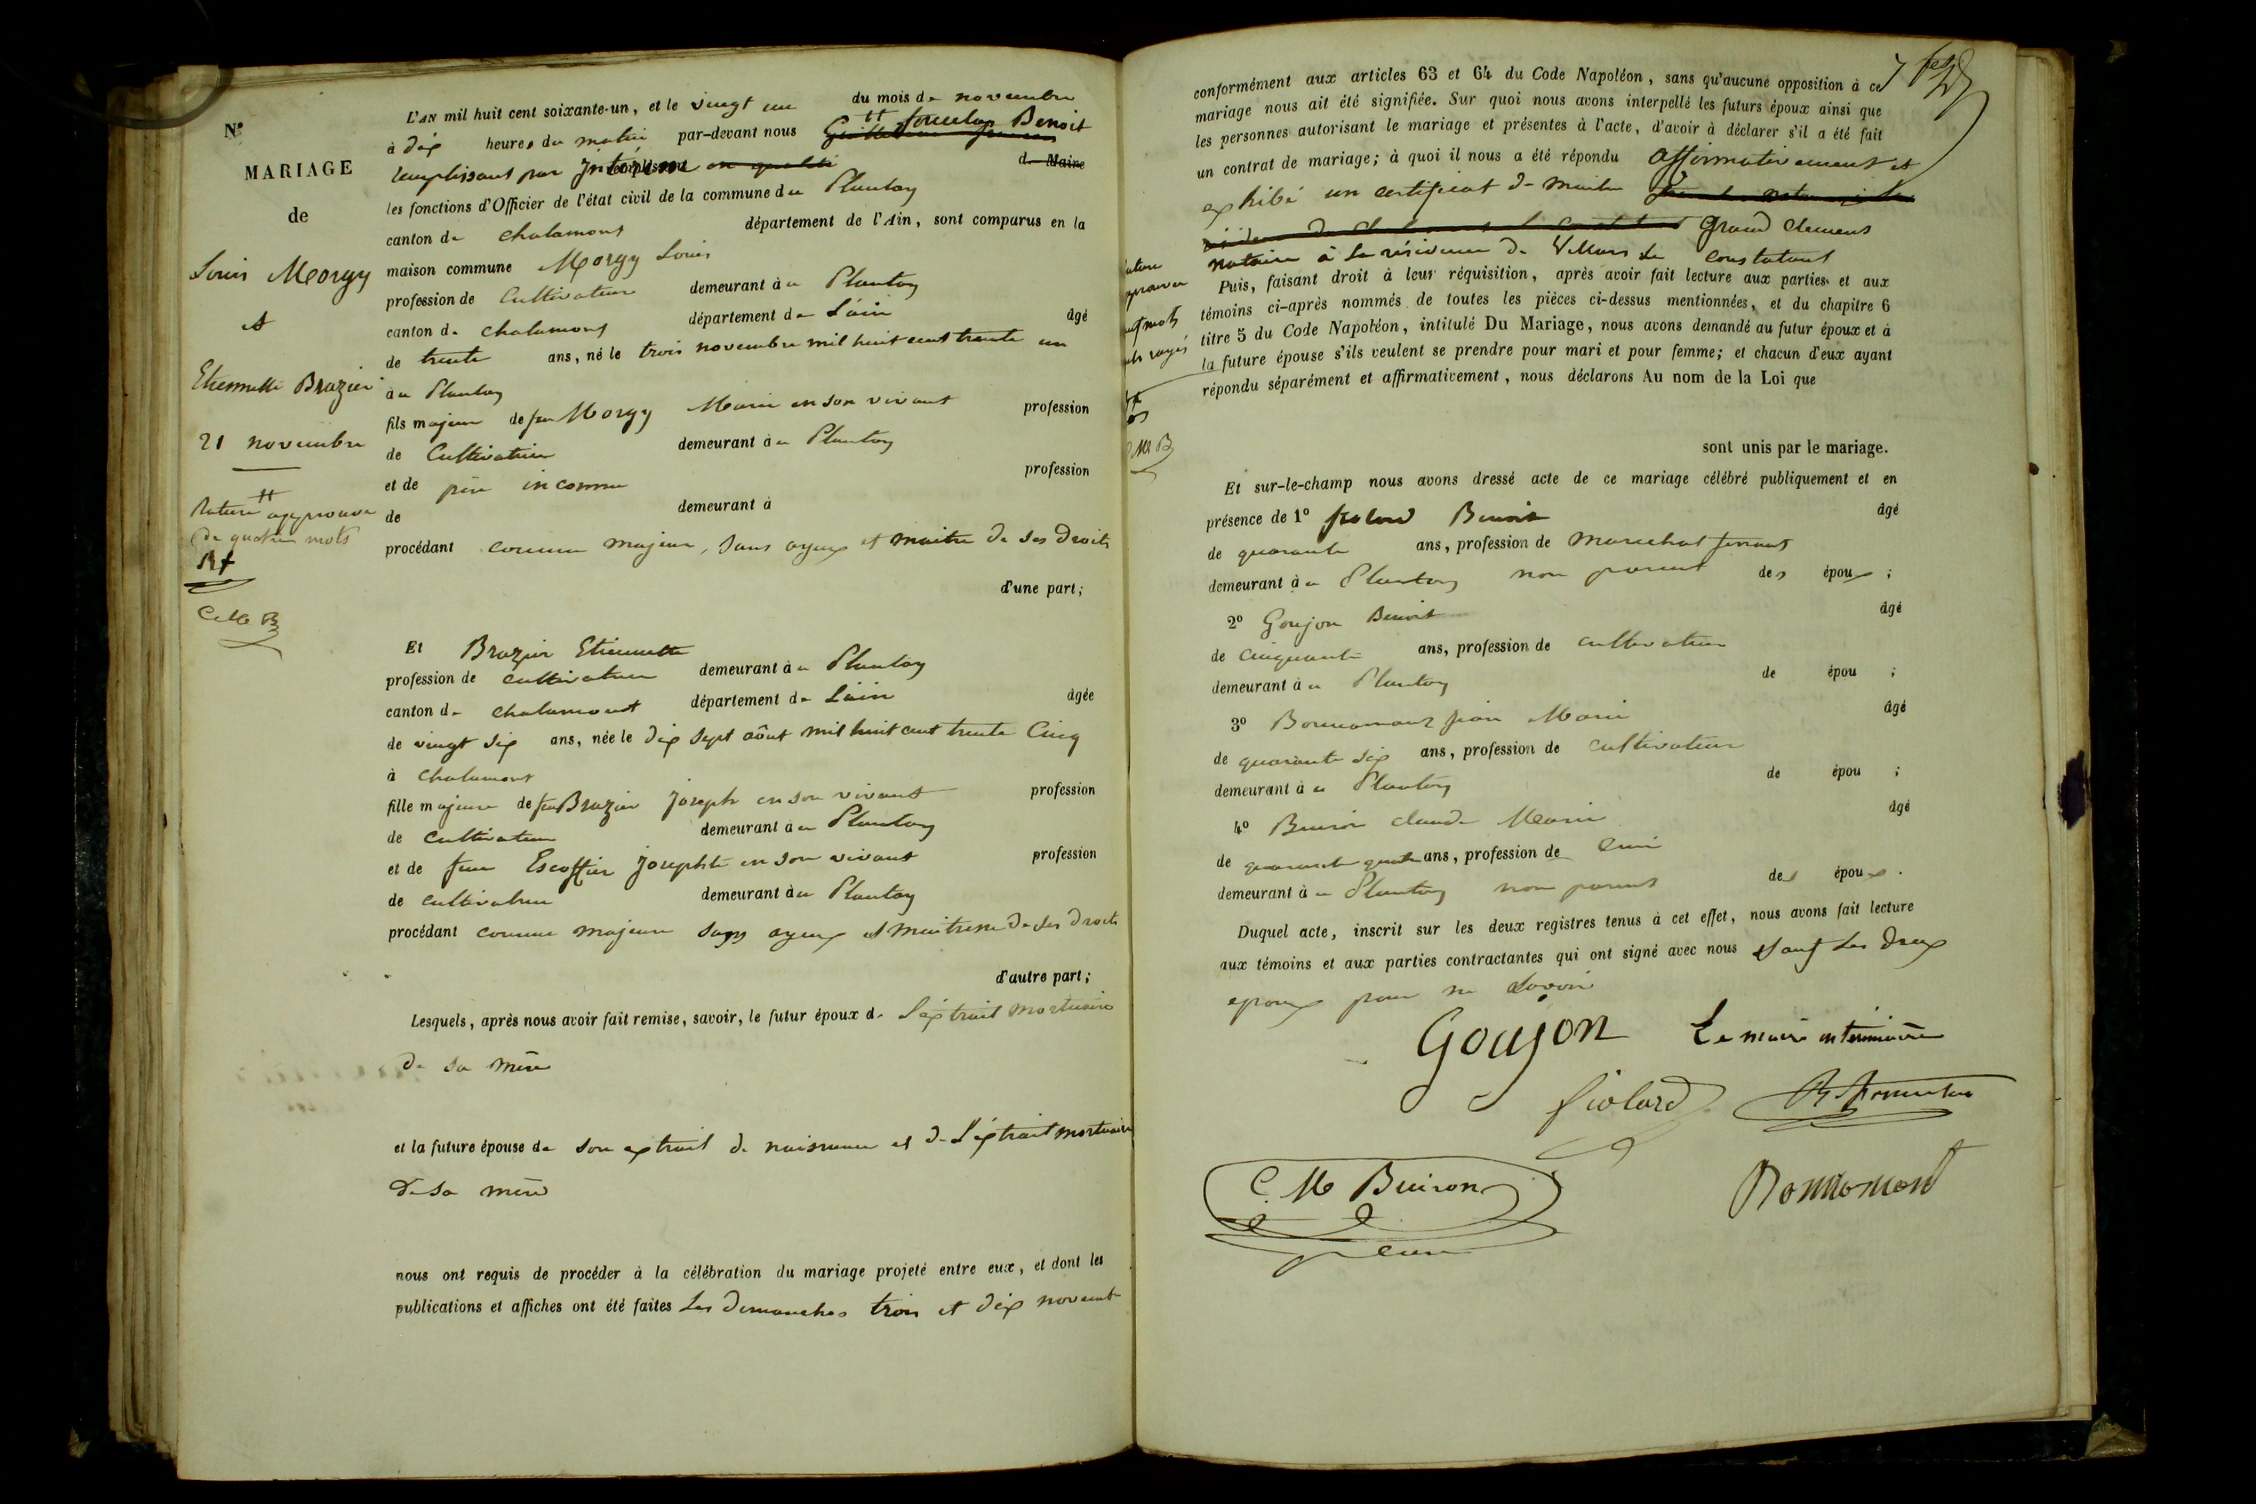 N°
MARIAGE
de
Louis Morgy
et
Etiennette Brazier
21 novembre
Rature approuvée
de quatre mots
Bf
C M B
L'AN mil huit cent soixante-un, et le vingt un du mois de novembre
à dix heures du matin par-devant nous Benoit
remplissant par Intérim en qualité de Maire
les fonctions d'Officier de l'état civil de la commune du Plantay
canton de chalamont département de l'Ain, sont comparus en la
maison commune Morgy Louis
profession de Cultivateur demeurant à u Plantay
canton de chalamont département de L'ain âgé
de trente ans, né le trois novembre mil huit cent trente un
à u Plantay
fils majeur de feu Morgy Marie en son vivant profession
de Cultivateur demeurant à u Plantay
et de père inconnu profession
de demeurant à
procédant comme majeur, sans ayeux et maitre de ses droits
d'une part;
Et Brazier Etiennette
profession de cultivateur demeurant à u Plantay
canton de chalamont département de L'ain âgée
de vingt six ans, née le dix sept aôut mil huit cent trente Cinq
à chalamont
fille majeure de feu Brazier Joseph en son vivant profession
de cultivateur demeurant à u Plantay
et de feue Escoffier Josephte en son vivant profession
de cultivateur demeurant à u Plantay
procédant comme majeure sans ayeux et maitresse de ses droits
d'autre part;
Lesquels, après nous avoir fait remise, savoir, le futur époux de L'éxtrait mortuaire
de sa mère
et la future épouse de son extrait de naissance et de L'éxtrait mortuaire
de sa mère
nous ont requis de procéder à la célébration du mariage projeté entre eux, et dont les
publications et affiches ont été faites Les dimanches trois et dix novemb
conformément aux articles 63 et 64 du Code Napoléon, sans qu'aucune opposition à ce
mariage nous ait été signifiée. Sur quoi nous avons interpellé les futurs époux ainsi que
les personnes autorisant le mariage et présentes à l'acte, d'avoir à déclarer s'il a été fait
un contrat de mariage; à quoi il nous a été répondu affirmativement et
exhibé un certificat de maitre
Grand Clement
notaire à la résidence de Villars le constatant
mots
rayés
Puis, faisant droit à leur réquisition, après avoir fait lecture aux parties et aux
témoins ci-après nommés de toutes les pièces ci-dessus mentionnées, et du chapitre 6
titre 5 du Code Napoléon, intitulé Du Mariage, nous avons demandé au futur époux et à
la future épouse s'ils veulent se prendre pour mari et pour femme; et chacun d'eux ayant
répondu séparément et affirmativement, nous déclarons Au nom de la Loi que
C M B
sont unis par le mariage.
Et sur-le-champ nous avons dressé acte de ce mariage célébré publiquement et en
présence de 1° fiolard Benoit âgé
de quarante ans, profession de marechal ferrant
demeurant à u Plantay non parent des époux;
2° Goujon Benoit âgé
de cinquante ans, profession de cultivateur
demeurant à u Plantay de épou ;
3° Bonnamour jean Marie âgé
de quarante six ans, profession de cultivateur
demeurant à u Plantay de épou ;
4° Buiron claude Marie âgé
de quarante quatre ans, profession de Curé
demeurant à u Plantay non parent des époux.
Duquel acte, inscrit sur les deux registres tenus à cet effet, nous avons fait lecture
aux témoins et aux parties contractantes qui ont signé avec nous sauf Les deux
epoux pour ne savoir
Goujon
Le maire interimaire
fiolard
C. M Buiron
curé